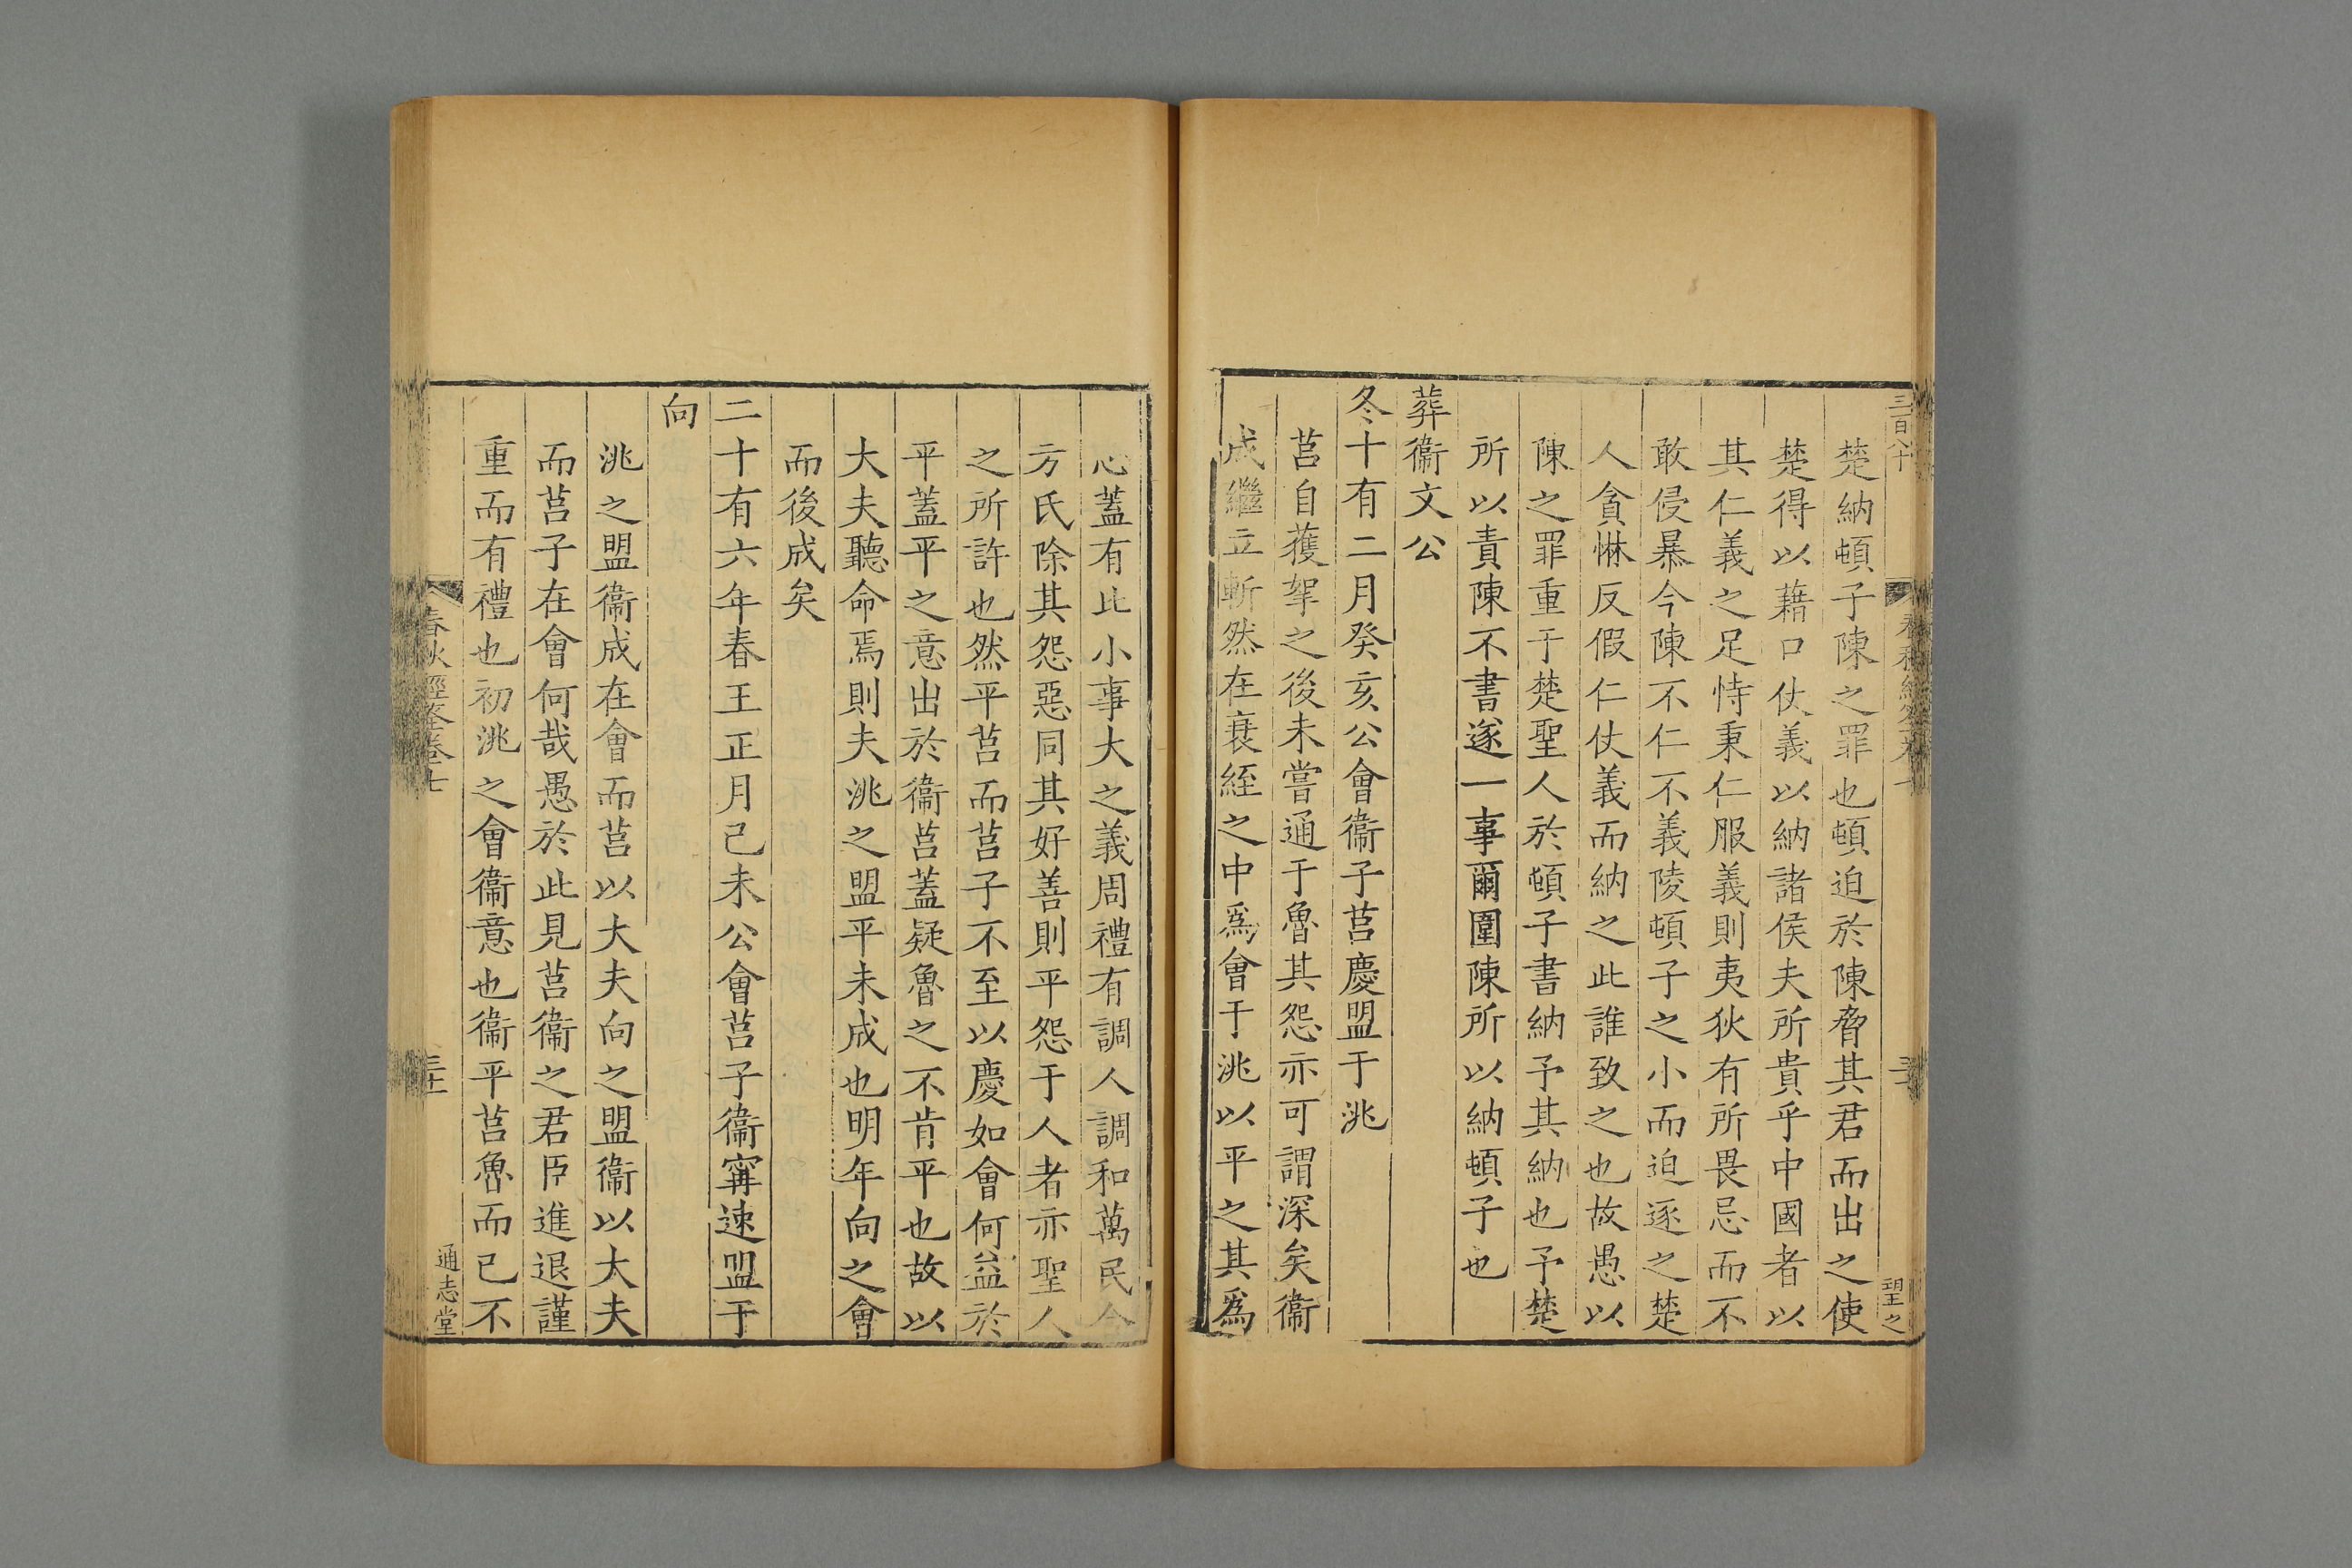 三百八十
楚納頓子陳之罪也頓迫於陳脅其君而出之使
楚得以藉口仗義以納諸侯夫所貴乎中國者以
其仁義之足恃秉仁服義則夷狄有所畏忌而不
敢侵暴今陳不仁不義陵頓子之小而迫逐之楚
人貪惏反假仁仗義而納之此誰致之也故愚以
陳之罪重于楚聖人於頓子書納予其納也予楚
所以責陳不書遂一事爾圍陳所以納頓子也
葬衞文公
冬十有二月癸亥公會衞子莒慶盟于洮
莒自獲挐之後未嘗通于魯其怨亦可謂深矣衞
成繼立斬然在衰絰之中爲會于洮以平之其爲
心蓋有此小事大之義周禮有調人調和萬民令
方氏除其怨惡同其好善則平怨于人者亦聖人
之所許也然平莒而莒子不至以慶如會何益於
平蓋平之意出於衞莒蓋疑魯之不肯平也故以
大夫聽命焉則夫洮之盟平未成也明年向之會
而後成矣
二十有六年春王正月己未公會莒子衞甯速盟于
向
洮之盟衞成在會而莒以大夫向之盟衞以大夫
而莒子在會何哉愚於此見莒衞之君臣進退謹
重而有禮也初洮之會衞意也衞平莒魯而已不
春秋經筌卷七
通志堂